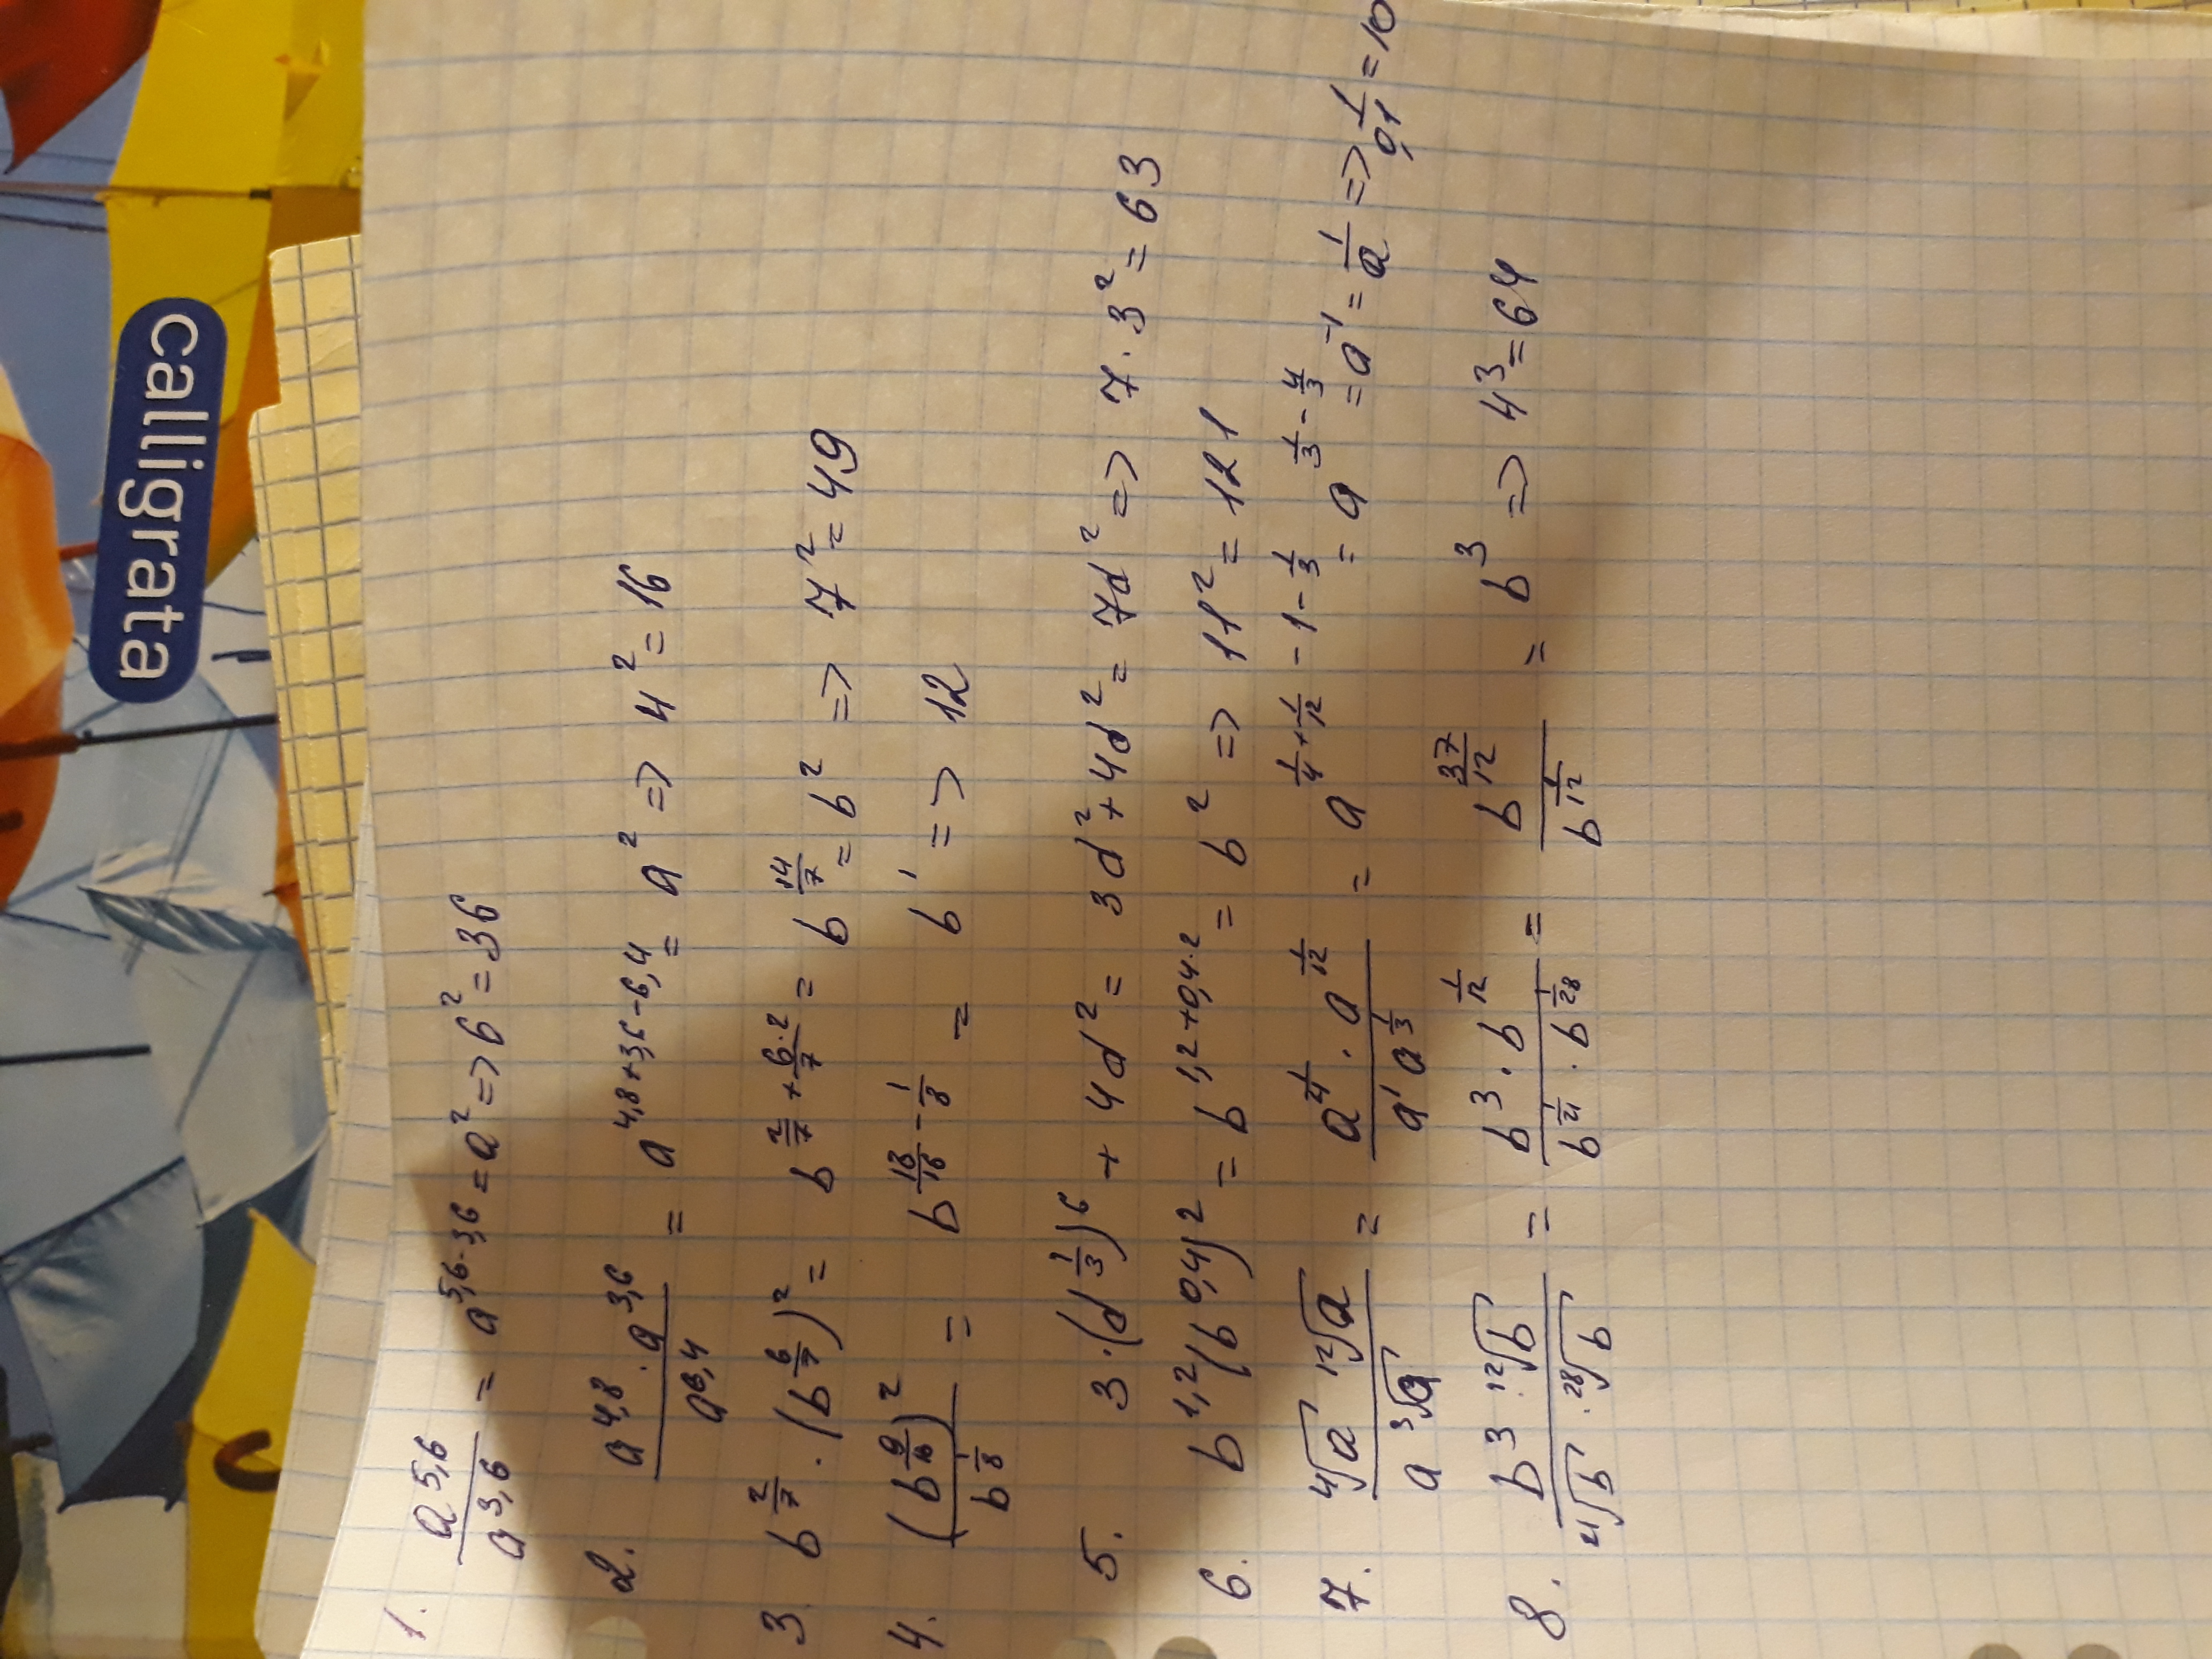 calligrata
1. a^5,6 / a^3,6 = a^5,6-3,6 = a^2 => 6^2 = 36
2. a^4,8 · a^3,6 / a^6,4 = a^4,8+3,6-6,4 = a^2 => 4^2 = 16
3. b^2/7 · (b^6/7)^2 = b^2/7 + 6·2/7 = b^14/7 = b^2 => 7^2 = 49
4. (b^9/16)^2 / b^1/8 = b^18/16 - 1/8 = b^1 => 12
5. 3·(d^1/3)^6 + 4d^2 = 3d^2 + 4d^2 = 7d^2 => 7·3^2 = 63
6. b^1,2 (b^0,4)^2 = b^1,2+0,4·2 = b^2 => 11^2 = 121
7. ⁴√a ¹²√a / a ³√a = a^1/4 · a^1/12 / a^1 a^1/3 = a^1/4 + 1/12 - 1 - 1/3 = a^1/3 - 4/3 = a^-1 = 1/a => 1/0,1 = 10
8. b^3 · ¹²√b / ²¹√b · ²⁸√b = b^3 · b^1/12 / b^1/21 · b^1/28 = b^37/12 / b^1/12 = b^3 => 4^3 = 64